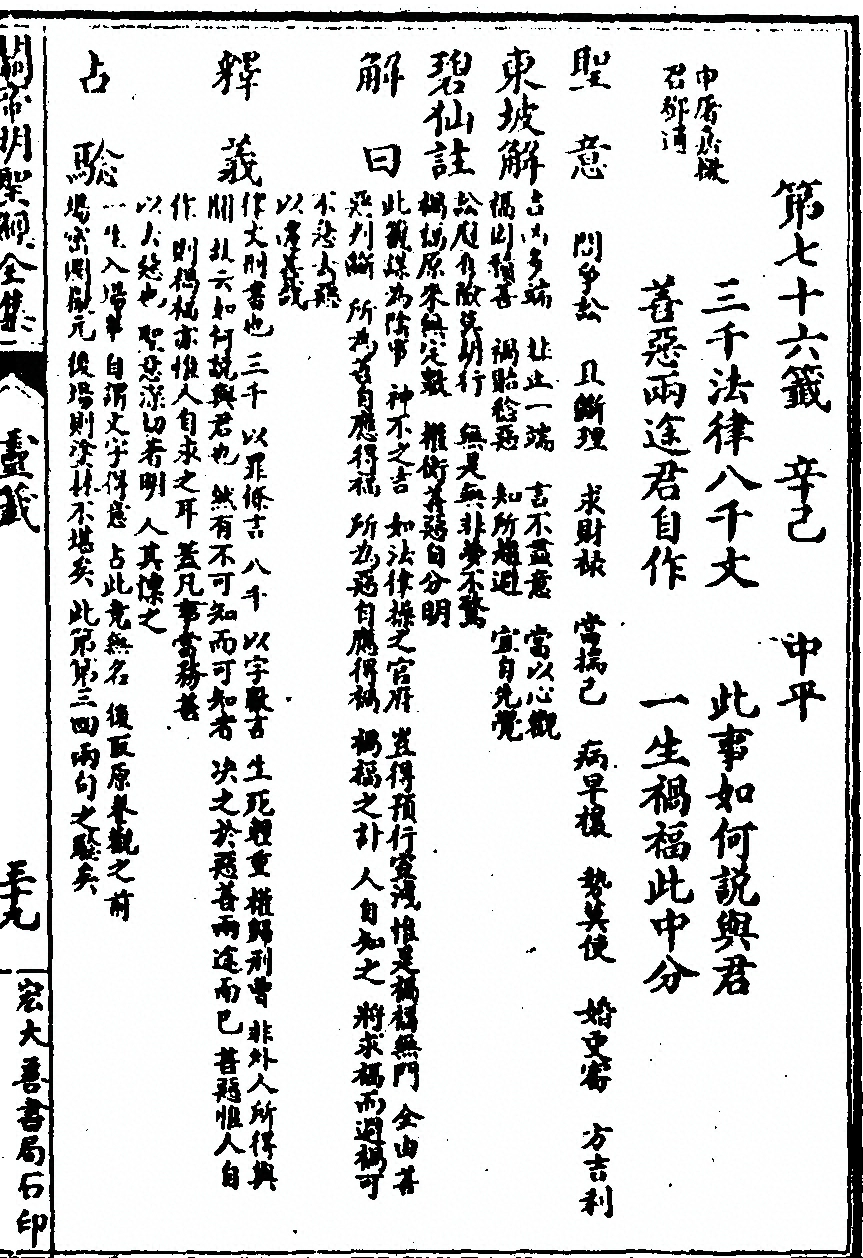 第七十六籤　辛己　中平
申屠嘉檄
召鄧通
三千法律八千文　此事如何說與君
善惡兩途君自作　一生禍福此中分
聖意　問爭訟　且斷理　求財祿　當揣己　病早禳　勢莫使　婚更審　方吉利
東坡解　吉凶多端　杜止一端　言不盡意　當以心觀
福因積善　禍貽稔惡　知所趨避　宜自先覺
碧仙註　訟庭有險莫胡行　無是無非夢不驚
禍福原來無定數　權衡善惡自分明
解曰　此籤謀為陰事　神不之吉　如法律操之官府　豈得預行宣洩　惟是禍福無門　全由善
惡判斷　所為善自應得福　所為惡自應得禍　禍福之計　人自知之　將求福而避禍可
不悉去惡
以遷善哉
釋義　作文刑書也　三千　以罪條言　八千　以字數言　生死輕重　權歸刑曹　非外人所得與
聞　故云如何說與君也　然有不可知而可知者　決之於惡善兩途而已　善惡惟人自
作　則禍福亦惟人自求之耳　蓋凡事當務善
以去惡也　聖意深切著明　人其慎之
占驗　一生入場畢　自謂文字得意　占此竟無名　後取原卷觀之　前
場密圈擬元　後場則塗抹不堪矣　此第第三四兩句之驗矣
關帝明聖經全集
靈籤
三十九
宏大善書局石印